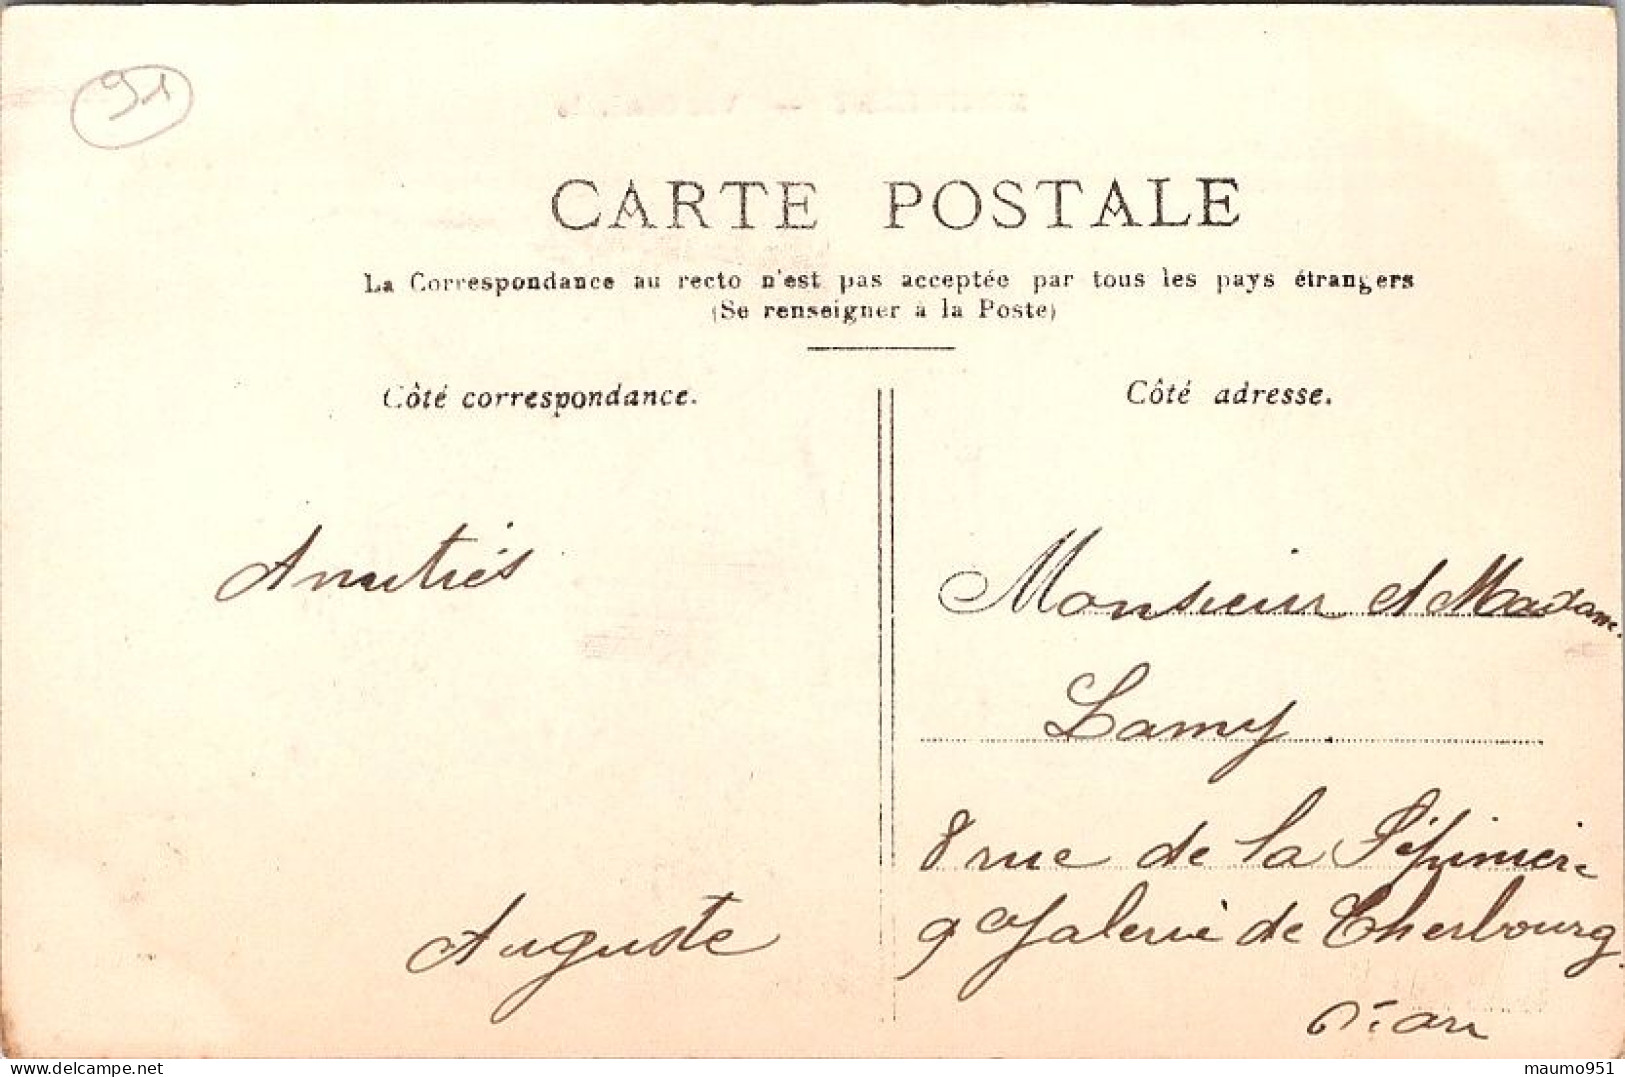 91
CARTE POSTALE
La Correspondance au recto n'est pas acceptée par tous les pays étrangers
(Se renseigner à la Poste)
Côté correspondance.
Côté adresse.
Amitiés
Auguste
Monsieur et Madame
Lamy
8 rue de la Pépinière
9 Galerie de Cherbourg
maumo951